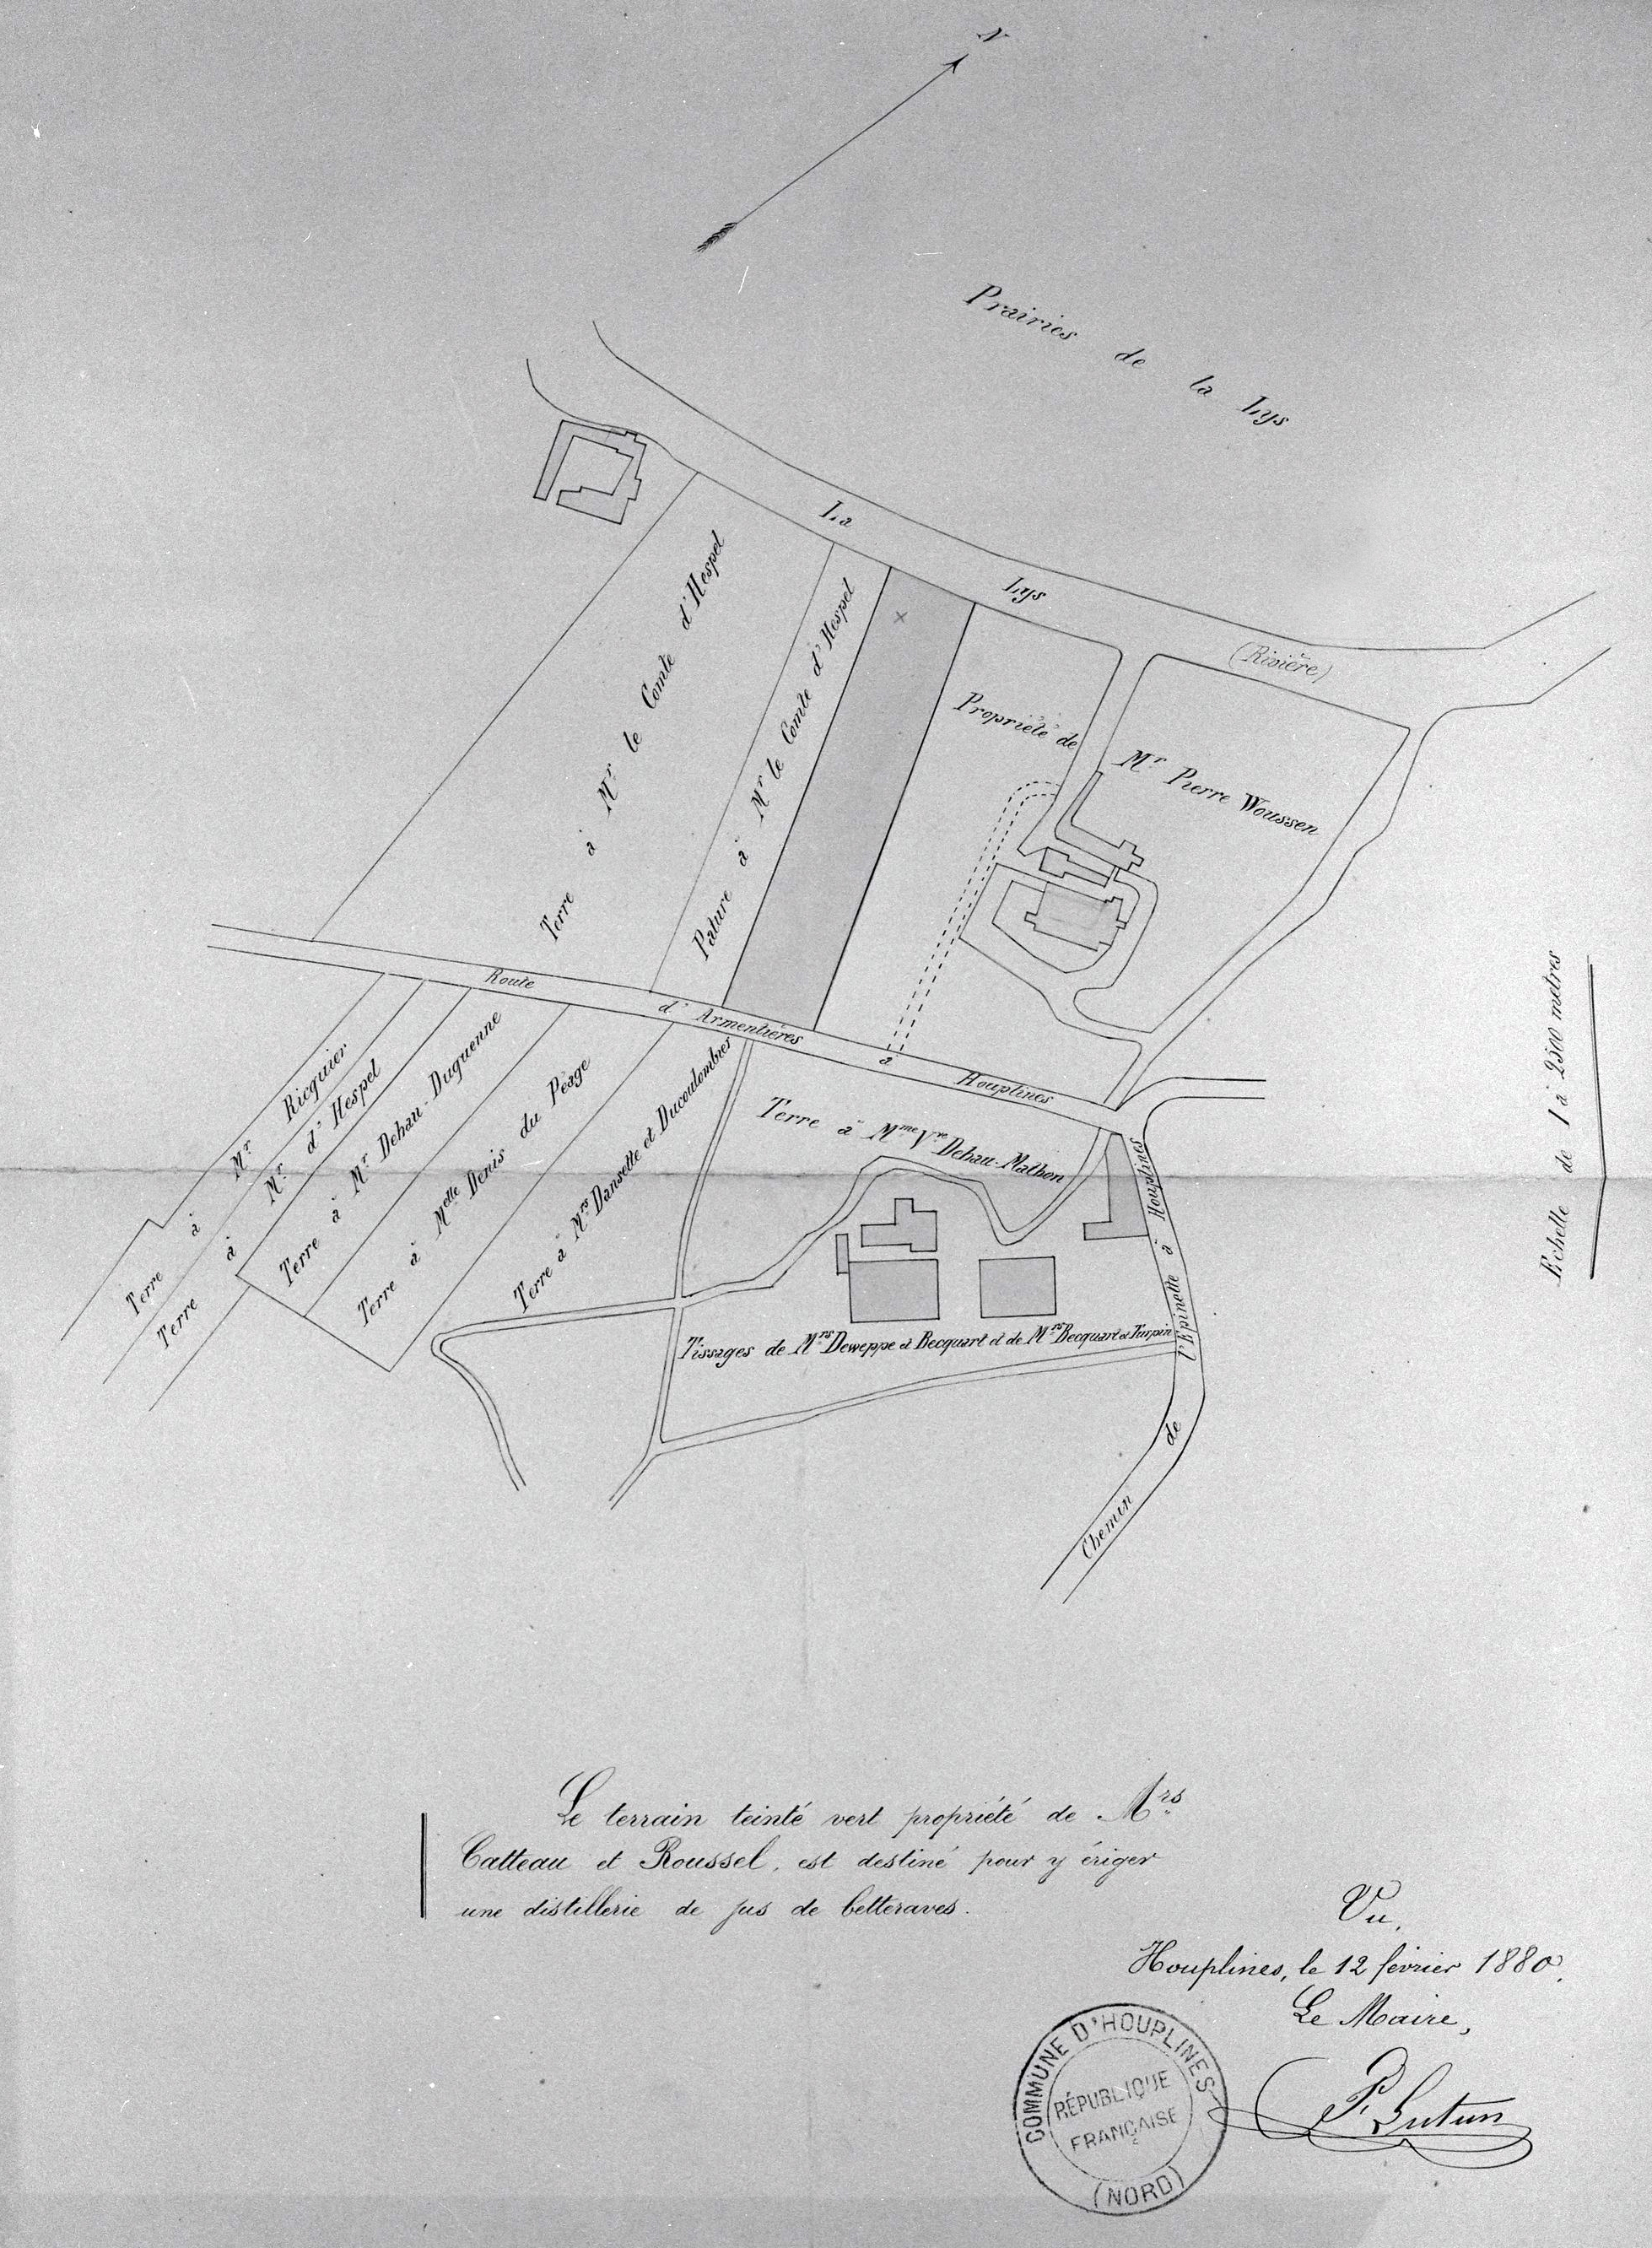 N
Prairies de la Lys
La Lys
(Rivière)
Terre à Mr le Comte d'Hespel
Pature à Mr le Comte d'Hespel
Propriété de Mr Pierre Woussen
Route d'Armentières à Houplines
Terre à Mr Ricquier
Terre à Mr d'Hespel
Terre à Mr Dehau-Duquenne
Terre à Melle Denis du Péage
Terre à Mrs Dansette et Ducoulombier
Terre à Mme Vve Dehau-Mathon
Tissages de Mrs Deweppe et Becquart et de Mrs Becquart et Turpin
Chemin de l'Epinette à Houplines
Echelle de 1 à 2500 metres
Le terrain teinté vert propriété de Mrs
Catteau et Roussel, est destiné pour y ériger
une distillerie de jus de betteraves.
Vu,
Houplines, le 12 février 1880.
Le Maire,
P. Lutun
COMMUNE D'HOUPLINES
RÉPUBLIQUE
FRANÇAISE
(NORD)